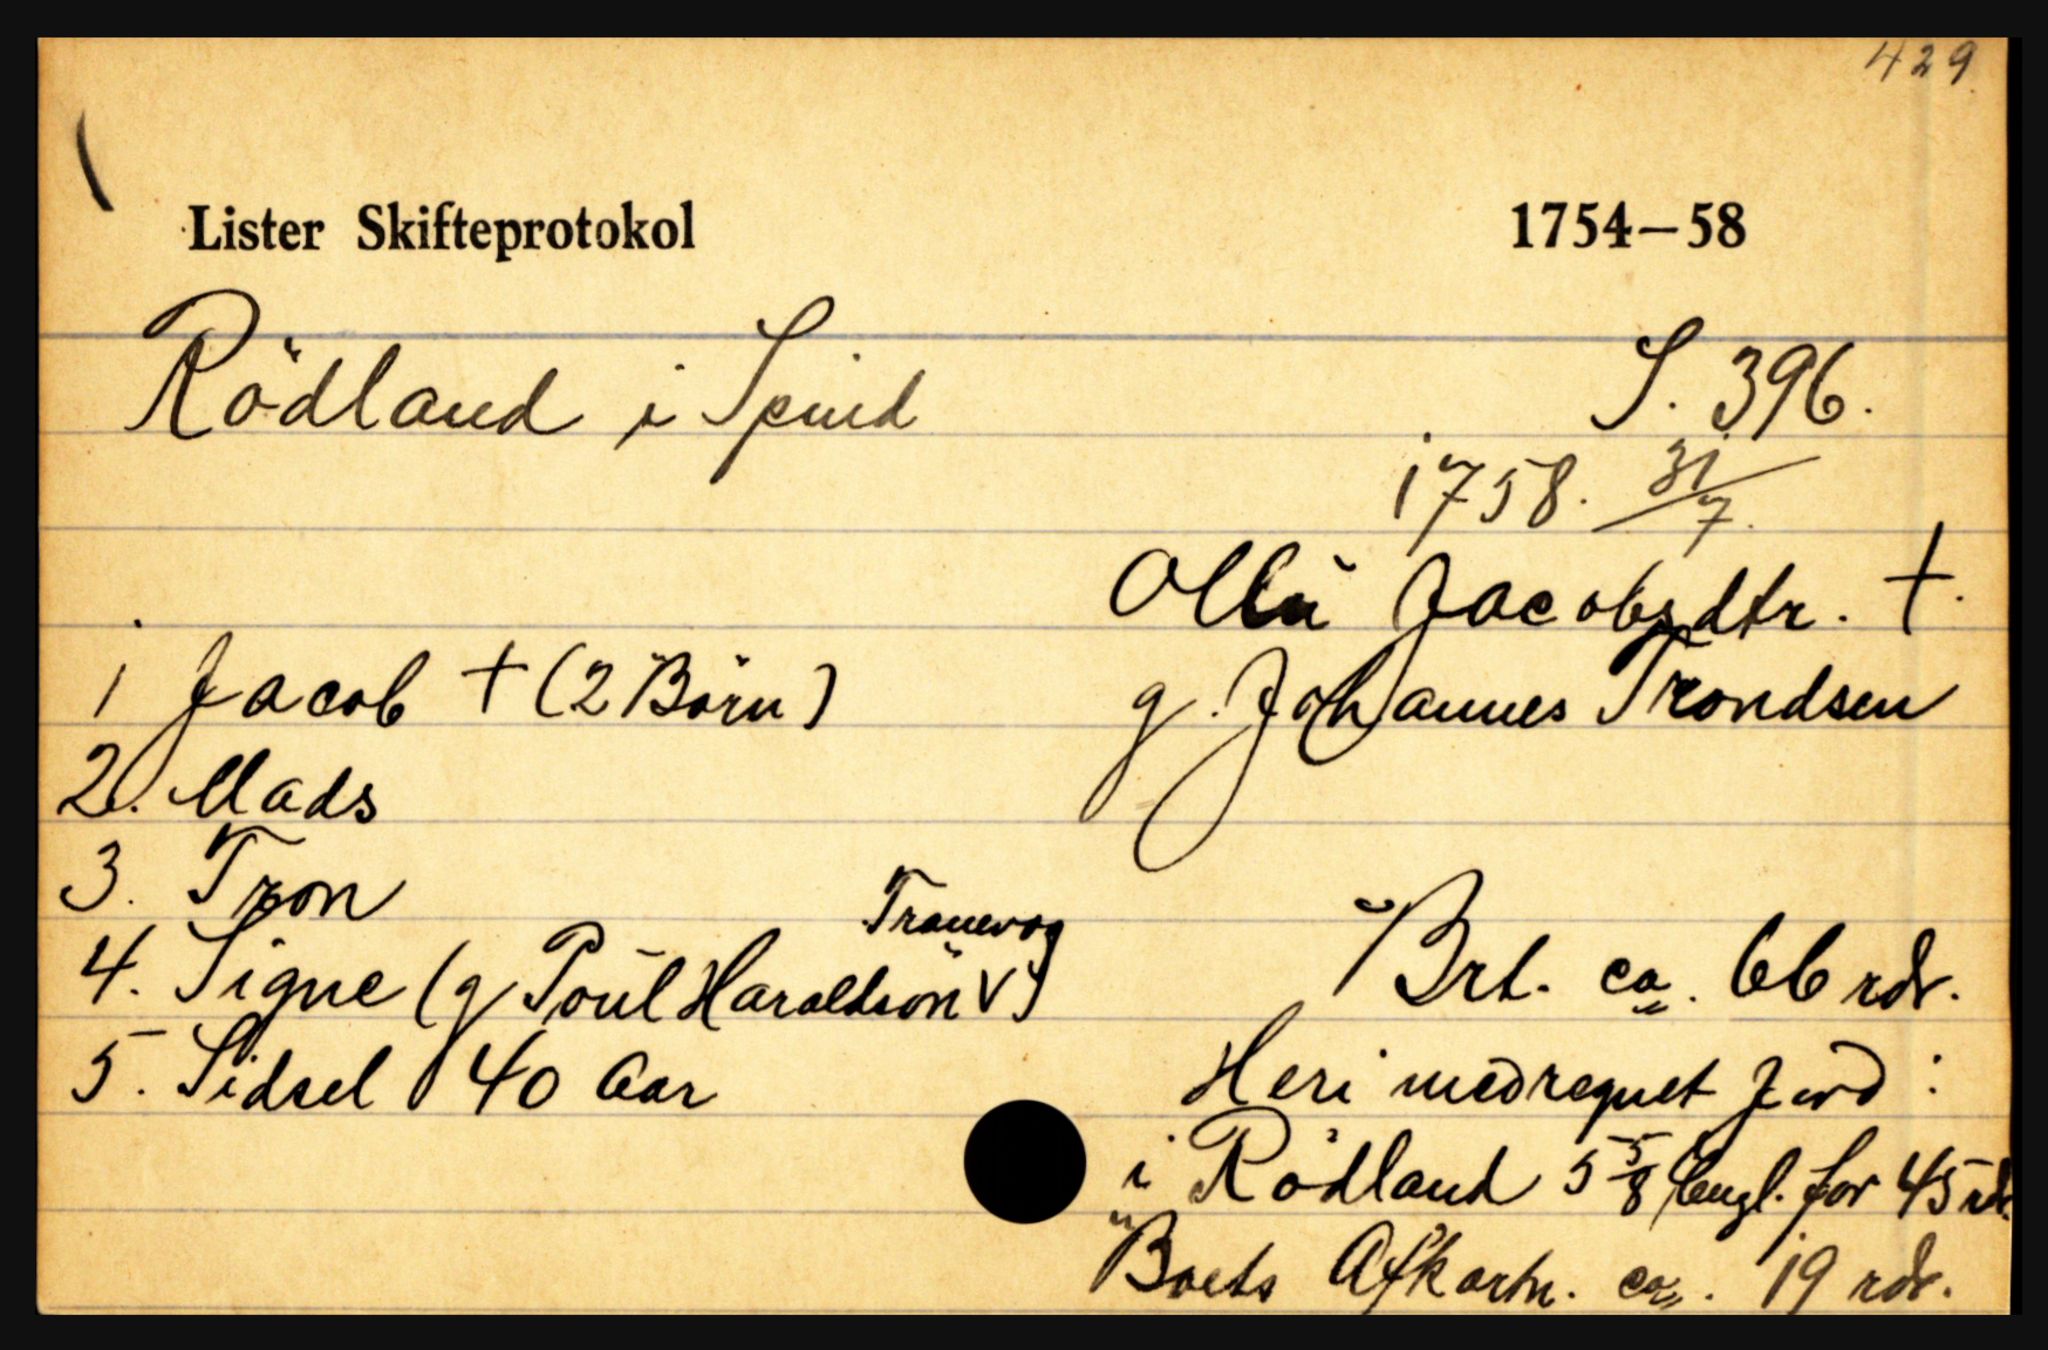 429.
Lister Skifteprotokol 1754—58
Rödland i Spind S. 396.
1758. 31/7.
Jacobsdtr. †.
1 Jacob † (2 Börn) g. Johannes Trondsen
2. Mads
3. Tron
Tranevog
4. Signe (g Poul Haraldson V) Brt. ca. 66 rdr.
5. Sidsel 40 Aar Heri medregnet Jord:
i Rödland 5 5/8 Engl. for 45 rdr.
Boets Afkastn. ca. 19 rdr.